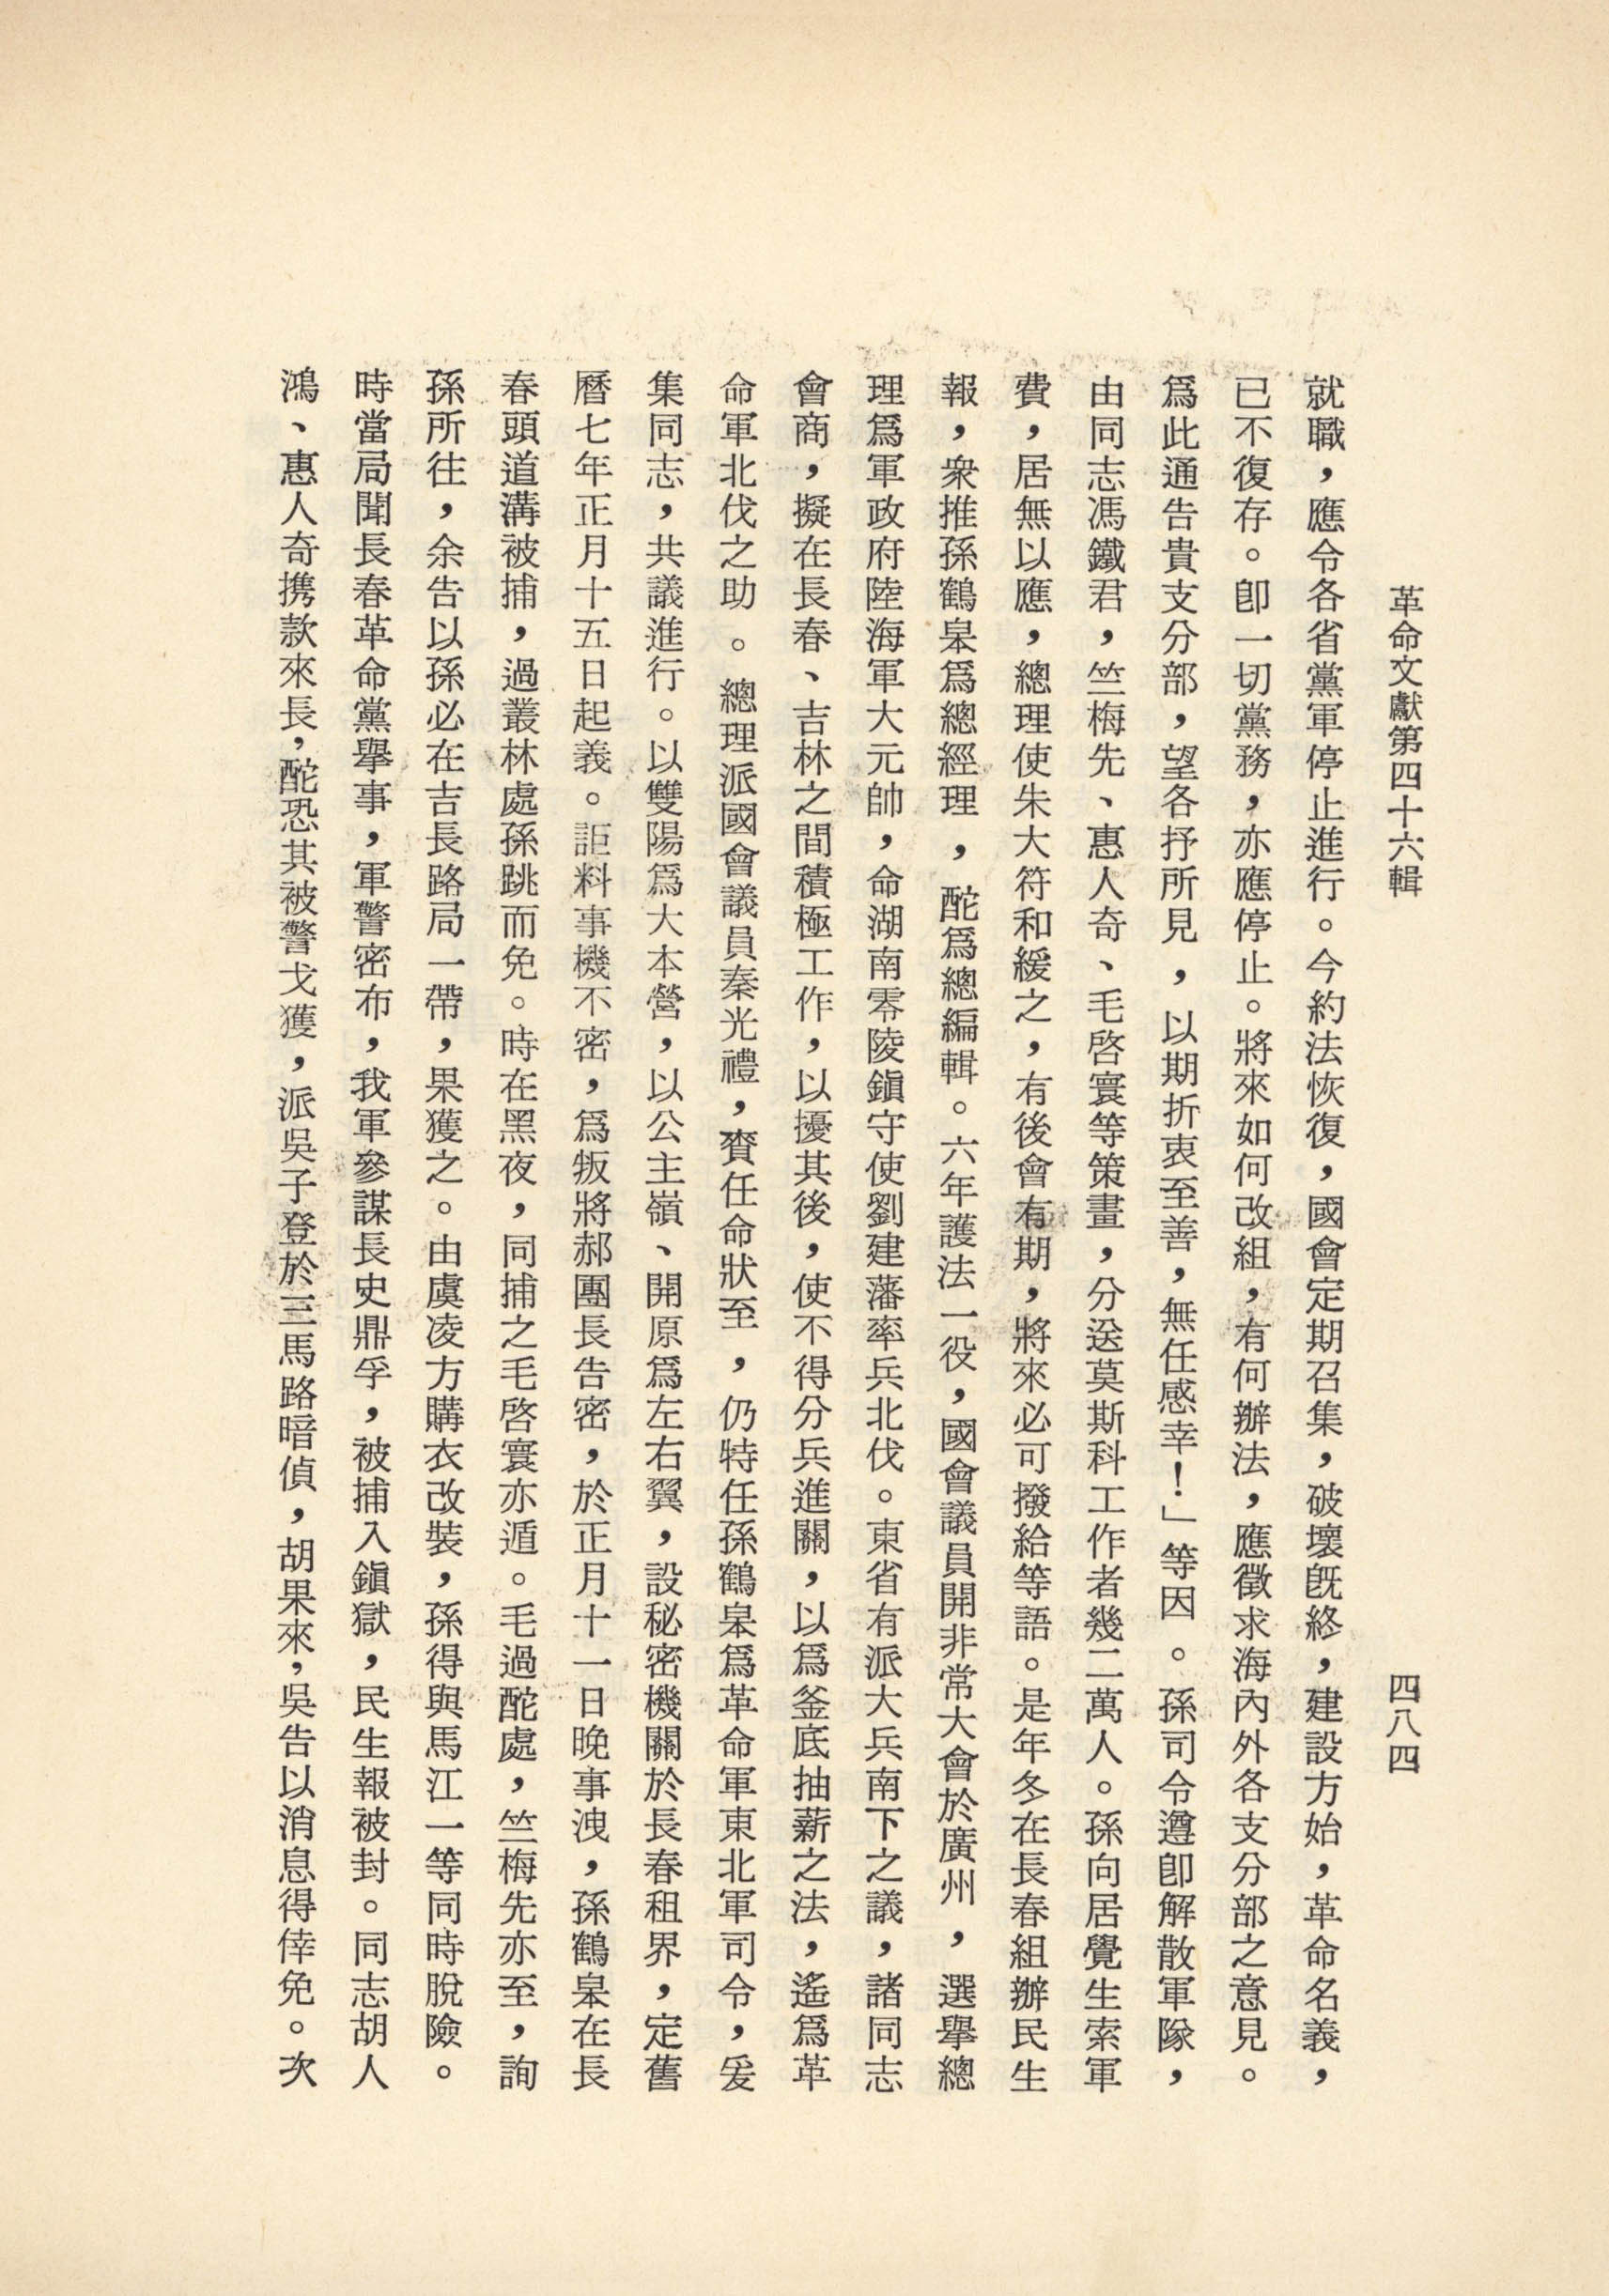 革命文獻第四十六輯
四八四
就職，應令各省黨軍停止進行。今約法恢復，國會定期召集，破壞旣終，建設方始，革命名義，
已不復存。卽一切黨務，亦應停止。將來如何改組，有何辦法，應徵求海內外各支分部之意見。
爲此通告貴支分部，望各抒所見，以期折衷至善，無任感幸！」等因。孫司令遵卽解散軍隊，
由同志馮鐵君，竺梅先、惠人奇、毛啓寰等策畫，分送莫斯科工作者幾二萬人。孫向居覺生索軍
費，居無以應，總理使朱大符和緩之，有後會有期，將來必可撥給等語。是年冬在長春組辦民生
報，衆推孫鶴皋爲總經理，酡爲總編輯。六年護法一役，國會議員開非常大會於廣州，選舉總
理爲軍政府陸海軍大元帥，命湖南零陵鎭守使劉建藩率兵北伐。東省有派大兵南下之議，諸同志
會商，擬在長春、吉林之間積極工作，以擾其後，使不得分兵進關，以爲釜底抽薪之法，遙爲革
命軍北伐之助。總理派國會議員秦光禮，賫任命狀至，仍特任孫鶴皋爲革命軍東北軍司令，爰
集同志，共議進行。以雙陽爲大本營，以公主嶺、開原爲左右翼，設秘密機關於長春租界，定舊
曆七年正月十五日起義。詎料事機不密，爲叛將郝團長告密，於正月十一日晚事洩，孫鶴皋在長
春頭道溝被捕，過叢林處孫跳而免。時在黑夜，同捕之毛啓寰亦遁。毛過酡處，竺梅先亦至，詢
孫所往，余告以孫必在吉長路局一帶，果獲之。由虞凌方購衣改裝，孫得與馬江一等同時脫險。
時當局聞長春革命黨舉事，軍警密布，我軍參謀長史鼎孚，被捕入鎭獄，民生報被封。同志胡人
鴻、惠人奇携款來長，酡恐其被警戈獲，派吳子登於三馬路暗偵，胡果來，吳告以消息得倖免。次